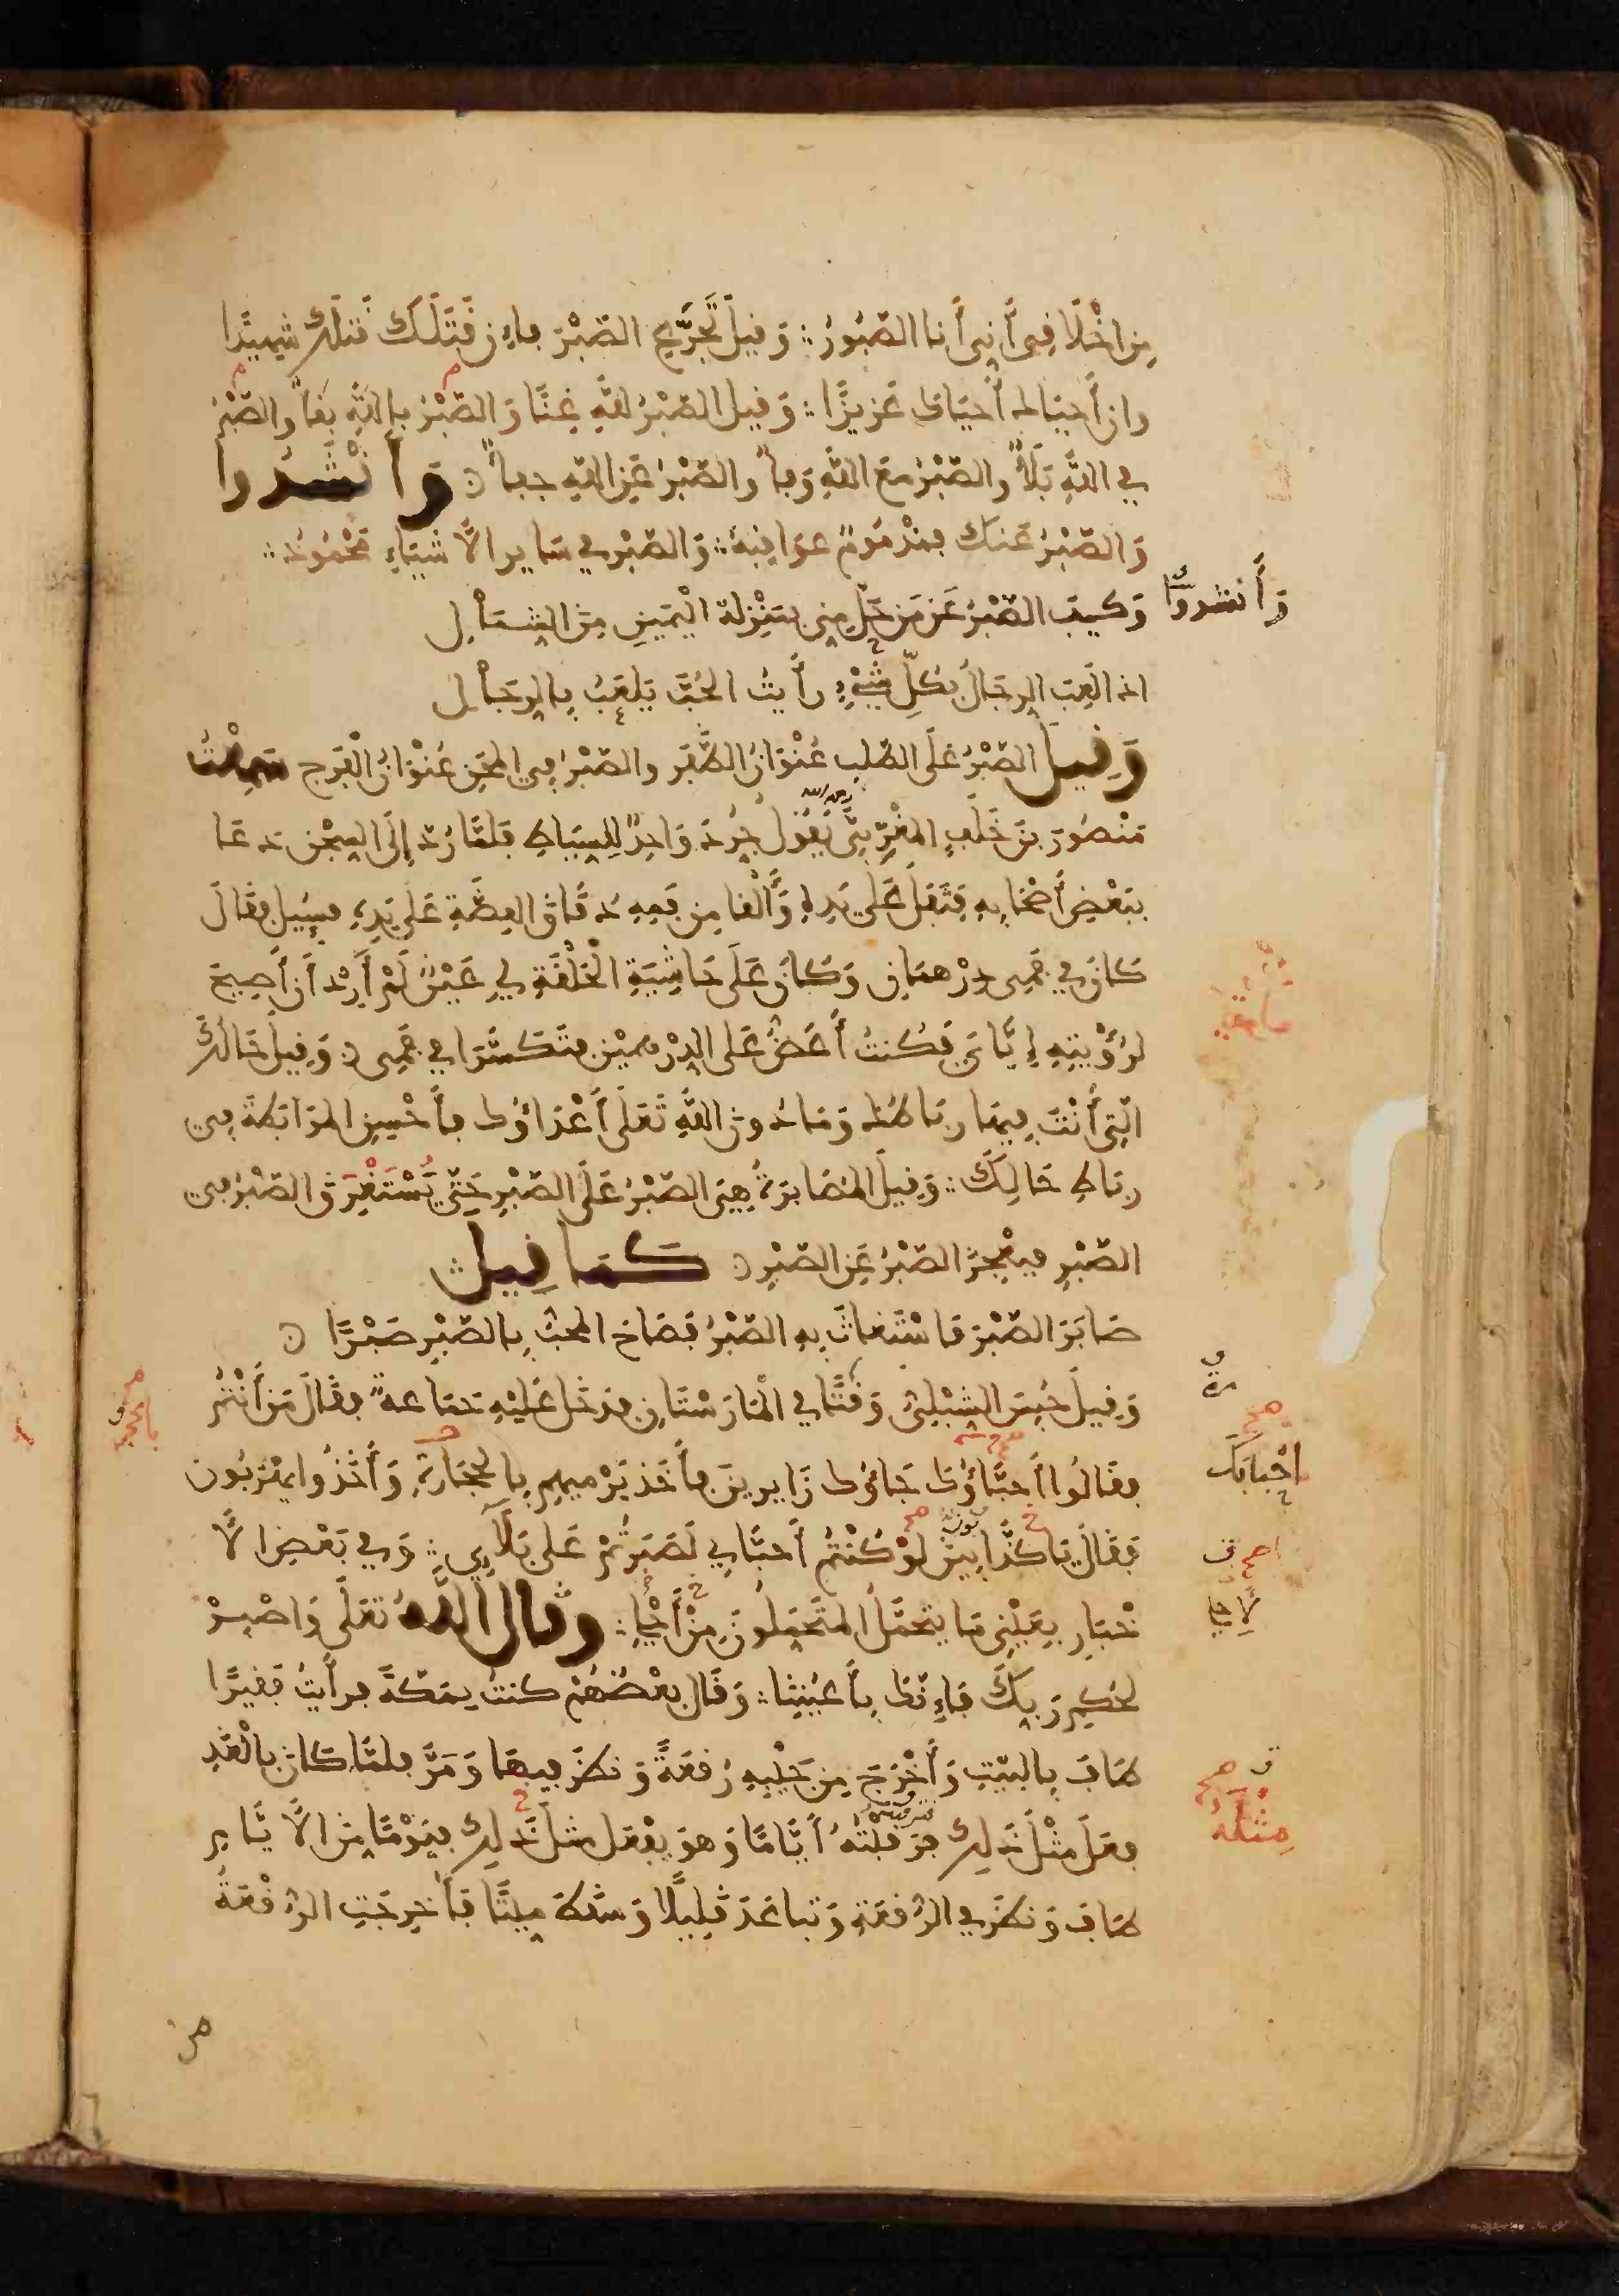 مِن اخْلَا فِى أَنِى أَنا الصَّبُورُ وَفيلَ تَجَرَّعِ الصَّبْرَ فاِن فَتَلَكَ فَتلَكَ شهِيدًا
وان أَحيَاكَ أَحيَاكَ عَزيزًا وَفيل الصَّبْرُ للَّهِ غِنًا وَالصَّبْرُ بِاللَّهِ بَفَآءٌ والصَّبْرُ
في اللَّهِ بَلَآءٌ والصَّبْرُ مَعَ اللَّهِ وَفآءٌ والصَّبْرُ عَنِ اللَّهِ جفآءٌ وَأَنْشَدُوا
وَالصَّبْرُ عَنكَ فمذْمُومٌ عوَافِبُهُ وَالصَّبْرُ في سَايرِ الَّا شيَاءِ مَحْمُودُ
وَأَنشدوا وَكيفَ الصَّبْرُ عَن مَن حَلَّ مِنى بمَنْزِلة الْيَمينِ مِنَ الشِّمَالِ
اذ الَعِبَ الرِجَالُ بكُلِّ شَيْءٍ رأَيتُ الحُبَّ يَلعَبُ بِالرِجَالِ
وَفيل الصَّبْرُ عَلَى الطَّلبِ عُنْوَانُ الظَّفَرِ والصَّبْرُ فِي المِحَنِ عُنْوَانُ الْفَرَجِ سَمِعْتُ
مَنْصُورَ بنَ خَلَفٍ المَغْرِبِيَّ رحمه الله يَفُولُ جُرِدَ وَاحِدٌ لِلسِيَاطِ فلَمَّا رُدّ إِلَى السِّجْنِ دَعَا
ببَعْضِ أَصْحَابِهِ فتَفَلَ عَلَى يَدِهِ وَأَلْفا مِن فَمِهِ دُفَاقَ الفِضَّةِ عَلَى يَدِهِ فسُيِلَ فقَالَ
كَانَ في فَمِى دِرْهمَانِ وَكَانَ عَلَى حَاشِيَةِ الْحَلْفَةِ لي عَيْنٌ لَمْ أُرِدْ أَن أَصِيحَ
لرُؤْيتِهِ إِيَّايَ فكُنتُ أَعَضُّ عَلَى الدِّرْهمَيْنِ فتَكَسَّرَا في فَمِى وَفِيلَ حَالُكَ
الَّتِى أَنْتَ فِيهَا رِبَاطُكَ وَمَا دُونَ اللَّهِ تَعَلَى أَعْدَاؤُكَ فأَحْسِنِ المُرَابَطَةَ فِي
رِبَاطِ حَالِكَ وَفيلَ المُصَابَرَةُ هِىَ الصَّبْرُ عَلَى الصَّبْرِ حَتَّى يُسْتَغْرِقَ الصَّبْرُ فِي
الصَّبْرِ فيعْجِزَ الصَّبْرُ عَنِ الصَّبْرِ كَمَا فِيلَ
صَابَرَ الصَّبْرَ فَاسْتَغَاثَ بِهِ الصَّبْرُ فَصَاحَ المُحِبُّ بِالصَّبْرِ صَبْرًا
وَفِيلَ حُبِسَ الشِّبْلِىُّ وَفْتًا في الْمَارَسْتَانِ فدَخَلَ عَلَيْهِ جَمَاعةٌ فقَالَ مَن أَنْتُمْ
فقَالُوا أَحبَّاؤُكَ جَاؤُكَ زَايرِينَ فأَخَذ يَرْميهِم بِالحجَارَةِ وَأَخَذُوا يهْرُبُون
احْبابَكَ
فقَالَ يَا كَذَّابِينَ لَوْ كُنْتُم أَحبَّاءِي لَصَبَرتُمْ عَلَى بَلَآءِي وَفي بَعْضِ الَّا
خْبَارِ بِعَيْنِى مَا يتحَمَّلُ المُتَحَمِّلُونَ مِنْ أَجْلِي وقال اللَّهُ تعَلَى وَاصْبِرْ
لِحُكِمِ رَبِكَ فَإِنَّكَ بِأَعْيُنِنَا وَقَال بعْضُهُمْ كنتُ بمَكَّةَ فرأَيتُ فَقيرًا
طَافَ بِالبَيْتِ وَأَخْرَجَ مِن جَيْبِهِ رُفعَةً وَنظَرَ فيهَا وَمَرَّ فلمَّا كَانَ بِالْغَدِ
فعَلَ مثْلَ ذَلِكَ فتَرَفَّبْتُهُ أَيَّامًا وَهوَ يفْعَل مثلَ ذَلِكَ فيَوْمًا مِنَ الَّا يَّامِ
مِثْلَهُ
طَافَ وَنظَرَ في الرُّفعَةِ وَتبَاعَدَ فَلِيلًا وَسَفَطَ ميِتًا فَأَخرِجَتِ الرُّفْعَةُ